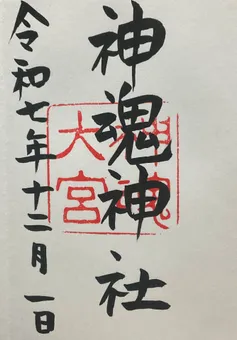 神魂神社
令和七年十二月一日
神魂
大宮